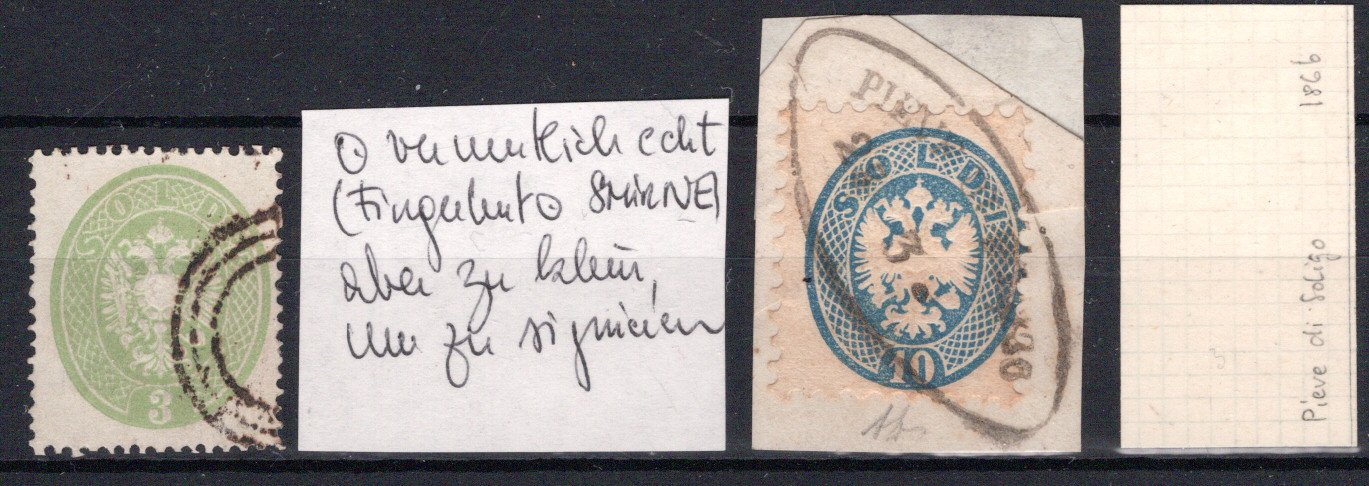 SOLDI
3
⊙ vermutlich echt
(Fingerhut⊙ SMIRNE)
aber zu klein,
um zu signieren
PIEV
SOLDI
10
Pieve di Soligo 1866